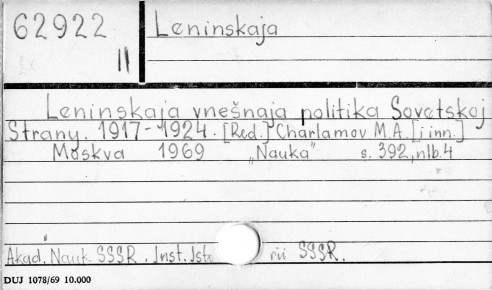 62922
II
Leninskaja
Leninskaja vnešnaja politika Sovetskoj
Strany. 1917-1924. [Red.] Charlamov M.A. [i inn.]
Moskva 1969 „Nauka" s. 392, nlb. 4
Akad. Nauk SSSR. Inst. Isto rii SSSR.
DUJ 1078/69 10.000